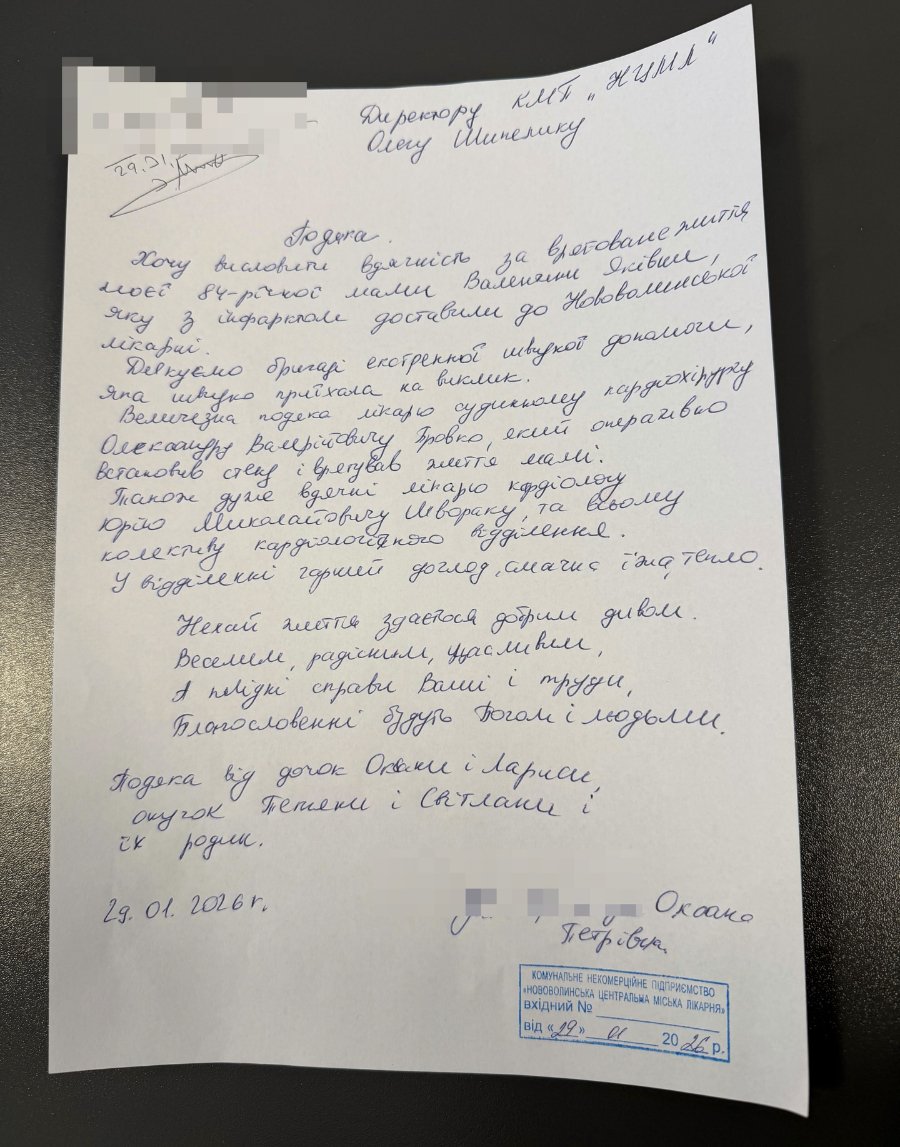 Директору КМП „НЦМЛ"
Олегу Шипелику
29.01.
Подяка.
Хочу висловити вдячність за врятоване життя
моєї 84-річної мами Валентини Яківни,
яку з інфарктом доставили до Нововолинської
лікарні.
Дякуємо бригаді екстренної швидкої допомоги,
яка швидко приїхала на виклик.
Величезна подяка лікарю судинному кардіохірургу
Олександру Валерійовичу Бровко, який оперативно
встановив стенд і врятував життя мамі.
Також дуже вдячні лікарю кардіологу
Юрію Миколайовичу Шворaку, та всьому
колективу кардіологічного відділення.
У відділенні гарний догляд, смачна їжа, тепло.
Нехай життя здається добрим дивом.
Веселим, радісним, щасливим,
А плідні справи Ваші і труди,
Благословенні будуть Богом і людьми.
Подяка від дочок Оксани і Лариси,
онучок Тетяни і Світлани і
їх родин.
29.01.2026 г.
Оксана
Петрівна.
КОМУНАЛЬНЕ НЕКОМЕРЦІЙНЕ ПІДПРИЄМСТВО
«НОВОВОЛИНСЬКА ЦЕНТРАЛЬНА МІСЬКА ЛІКАРНЯ»
вхідний №
від «29» 01 2026 р.